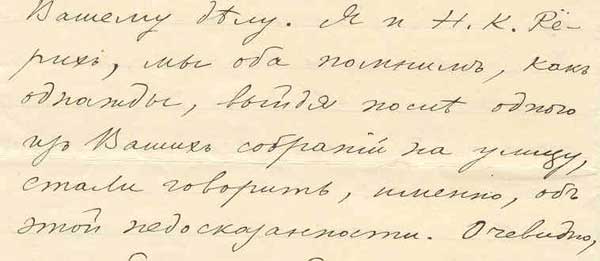 Вашему дѣлу. Я и Н. К. Рё-
рихъ, мы оба помнимъ, какъ
однажды, выйдя послѣ одного
изъ Вашихъ собраній на улицу,
стали говорить, именно, объ
этой недосказанности. Очевидно,